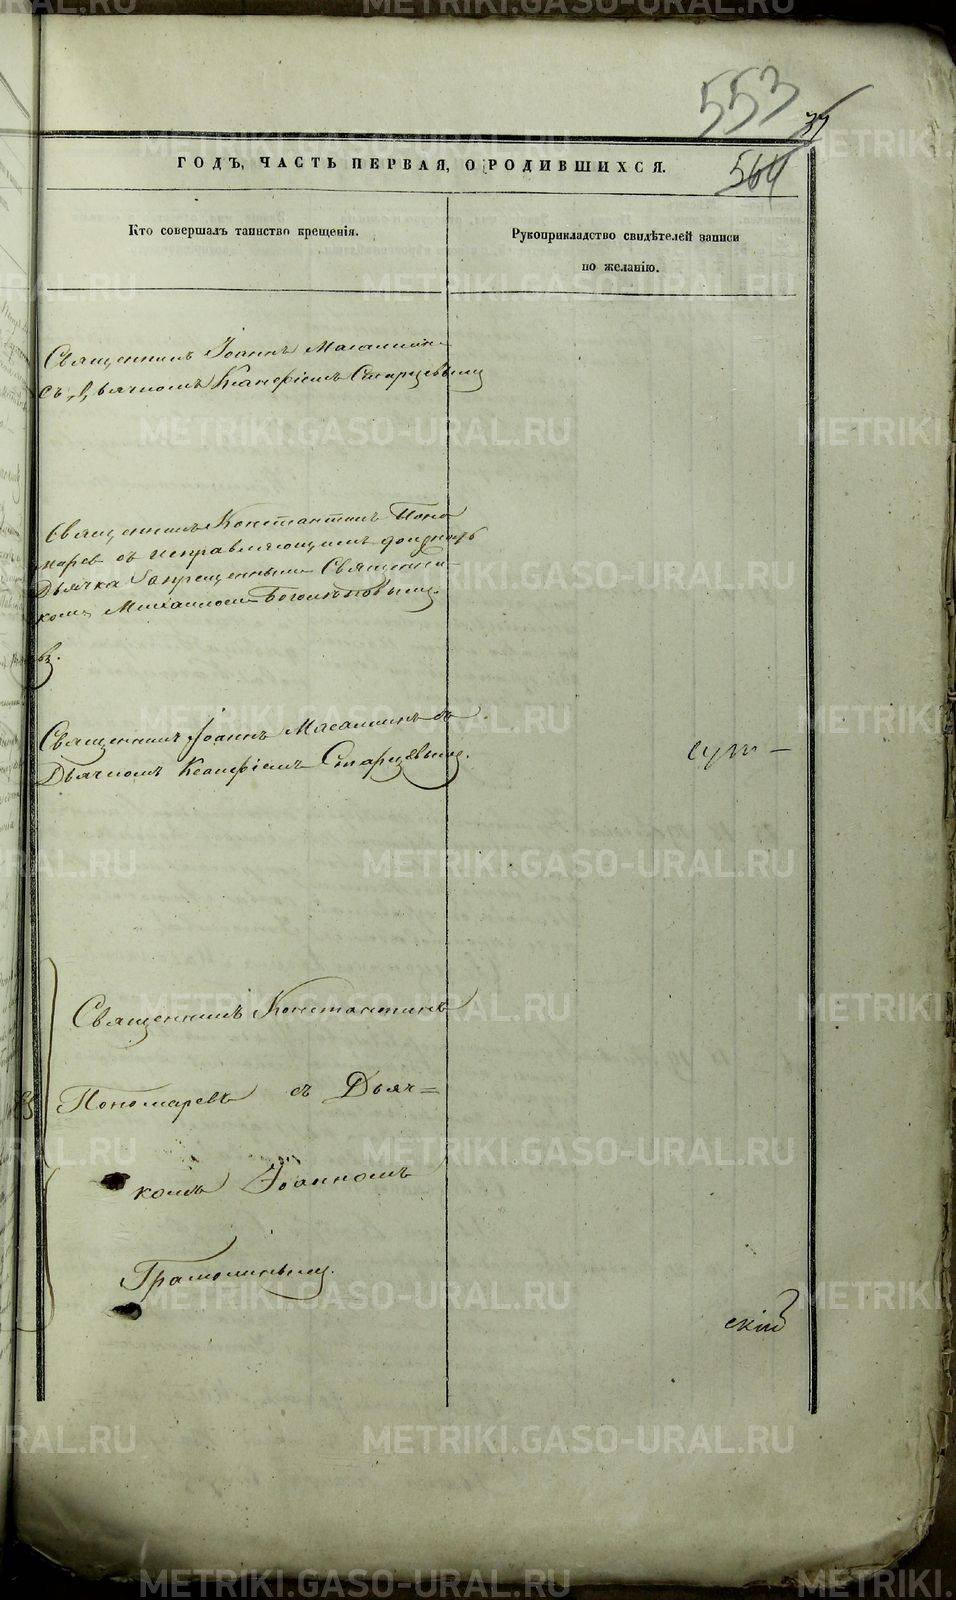 553
37
564
ГОДЪ, ЧАСТЬ ПЕРВАЯ, О РОДИВШИХСЯ.
Кто совершалъ таинство крещенія.
Рукоприкладство свидѣтелей записи
по желанію.
Священникъ Іоаннъ
съ Дьячкомъ Ксанѳіемъ Старцевымъ
Священникъ Константинъ Поно
маревъ съ исправляющимъ должность
Дьячка Запрещеннымъ Священни-
комъ Михаиломъ Боголѣповымъ.
Священникъ Іоаннъ съ
Дьячкомъ Ксанѳіемъ Старцевымъ.
Священникъ Константинъ
Пономаревъ съ Дьяч=
комъ Іоанномъ
Грамолинымъ.
скій
METRIKI.GASO-URAL.RU